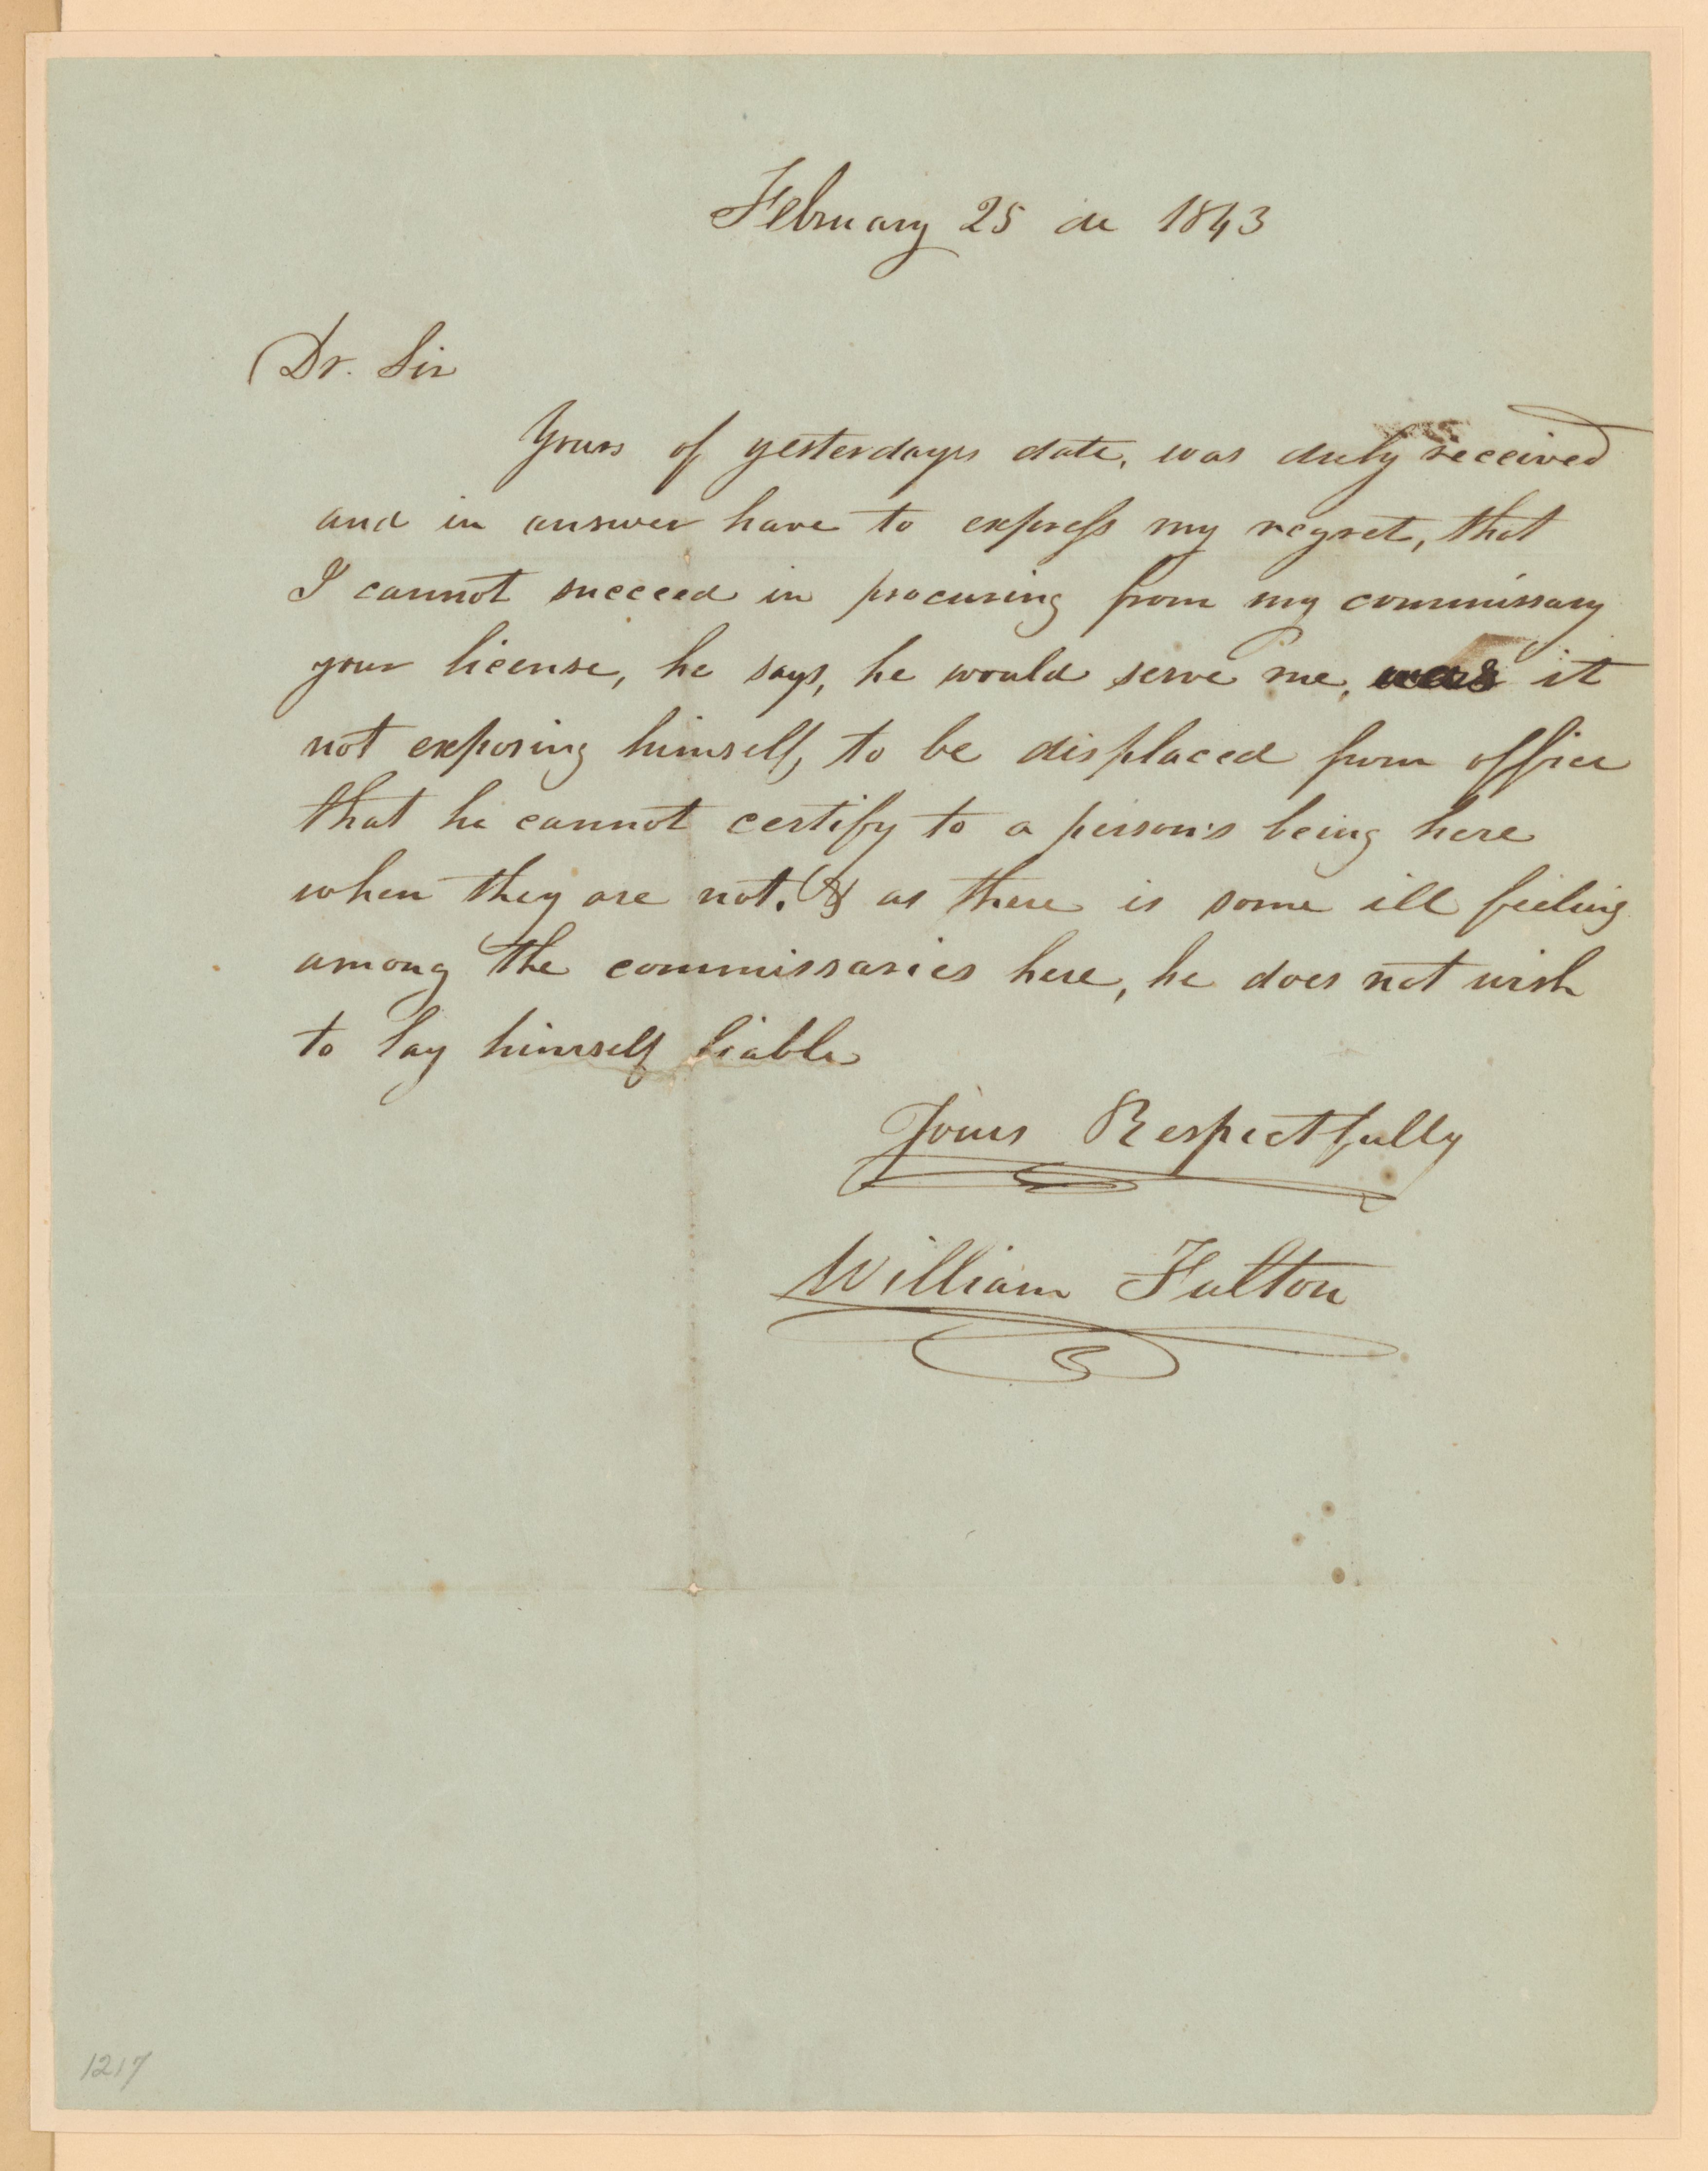 February 25 de 1843
Dr. Sir
Yours of yesterdays date, was duly received
and in answer have to express my regret, that
I cannot succeed in procuring from my commissary
your license, he says, he would serve me, was it
not exposing himself, to be displaced from office
that he cannot certify to a person's being here
when they are not. & as there is some ill feeling
among the commissaries here, he does not wish
to lay himself liable
Yours Respectfully
William Fulton
1217